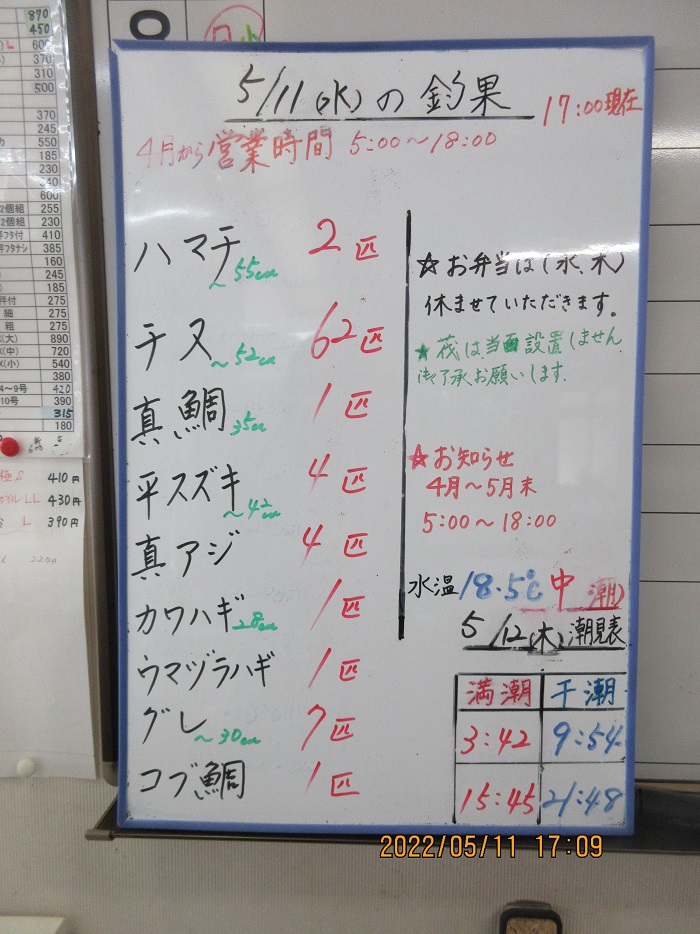 5/11(水)の釣果
17:00現在
4月から営業時間 5:00〜18:00
ハマチ 〜55cm 2匹
チヌ 〜52cm 62匹
真鯛 35cm 1匹
平スズキ 〜42cm 4匹
真アジ 4匹
カワハギ 28cm 1匹
ウマヅラハギ 1匹
グレ 〜30cm 7匹
コブ鯛 1匹
☆お弁当は(水、木)
休ませていただきます。
★筏は当面設置しません
御了承お願いします.
☆お知らせ
4月〜5月末
5:00〜18:00
水温 18.5℃ 中潮)
5/12(木)潮見表
満潮 干潮
3:42 9:54
15:45 21:48
2022/05/11 17:09
870
450
600
310
500
370
245
550
185
230
340
600
2個組 255
2個組 230
410
385
160
245
185
275
細 275
粗 275
(大) 890
(中) 720
(小) 540
380
4〜9号 420
10号 390
315
180
410円
LL 430円
L 390円